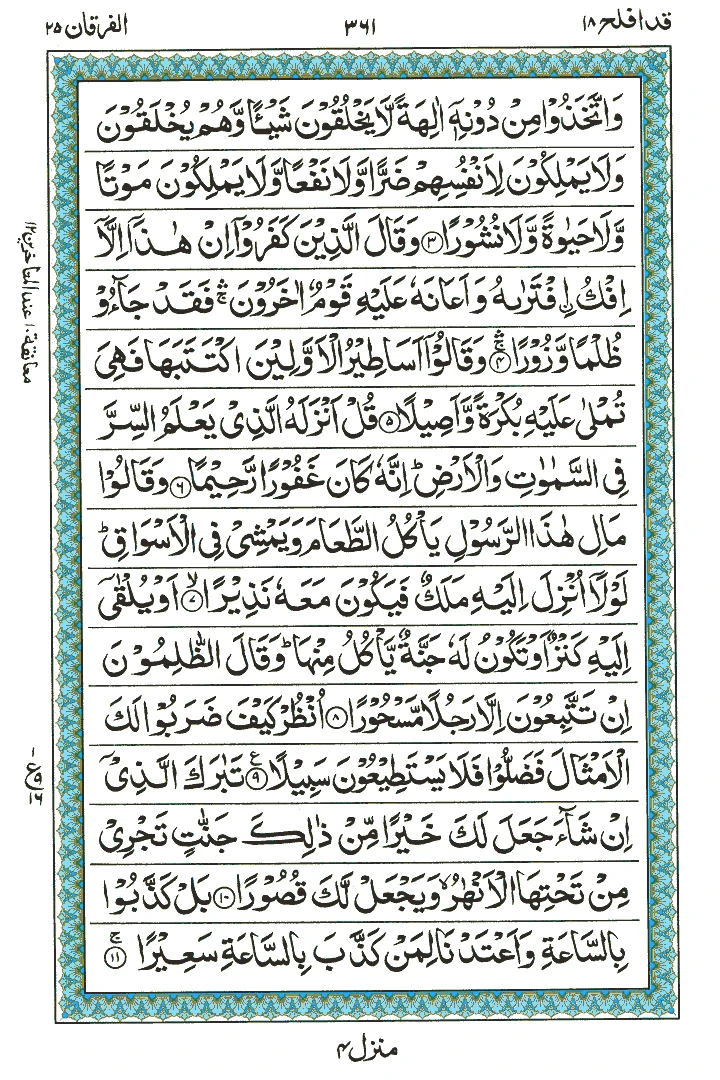 قد افلح ١٨
٣٦١
الفرقان ٢٥
وَاتَّخَذُوْا مِنْ دُوْنِهٖۤ اٰلِهَةً لَّا يَخْلُقُوْنَ شَيْـًٔا وَّهُمْ يُخْلَقُوْنَ
وَلَا يَمْلِكُوْنَ لِاَنْفُسِهِمْ ضَرًّا وَّلَا نَفْعًا وَّلَا يَمْلِكُوْنَ مَوْتًا
وَّلَا حَيٰوةً وَّلَا نُشُوْرًا ﴿٣﴾ وَقَالَ الَّذِيْنَ كَفَرُوْۤا اِنْ هٰذَاۤ اِلَّاۤ
اِفْكُ ۨافْتَرٰىهُ وَاَعَانَهٗ عَلَيْهِ قَوْمٌ اٰخَرُوْنَ ۛۚ فَقَدْ جَآءُوْ
ظُلْمًا وَّزُوْرًا ۛۚ ﴿٤﴾ وَقَالُوْۤا اَسَاطِيْرُ الْاَوَّلِيْنَ اكْتَتَبَهَا فَهِيَ
تُمْلٰى عَلَيْهِ بُكْرَةً وَّاَصِيْلًا ﴿٥﴾ قُلْ اَنْزَلَهُ الَّذِيْ يَعْلَمُ السِّرَّ
فِي السَّمٰوٰتِ وَالْاَرْضِ ؕ اِنَّهٗ كَانَ غَفُوْرًا رَّحِيْمًا ﴿٦﴾ وَقَالُوْا
مَالِ هٰذَا الرَّسُوْلِ يَاْكُلُ الطَّعَامَ وَيَمْشِيْ فِي الْاَسْوَاقِ ؕ
لَوْلَاۤ اُنْزِلَ اِلَيْهِ مَلَكٌ فَيَكُوْنَ مَعَهٗ نَذِيْرًا ۙ ﴿٧﴾ اَوْ يُلْقٰۤى
اِلَيْهِ كَنْزٌ اَوْ تَكُوْنُ لَهٗ جَنَّةٌ يَّاْكُلُ مِنْهَا ؕ وَقَالَ الظّٰلِمُوْنَ
اِنْ تَتَّبِعُوْنَ اِلَّا رَجُلًا مَّسْحُوْرًا ﴿٨﴾ اُنْظُرْ كَيْفَ ضَرَبُوْا لَكَ
الْاَمْثَالَ فَضَلُّوْا فَلَا يَسْتَطِيْعُوْنَ سَبِيْلًا ﴿٩﴾ ع تَبٰرَكَ الَّذِيْۤ
اِنْ شَآءَ جَعَلَ لَكَ خَيْرًا مِّنْ ذٰلِكَ جَنّٰتٍ تَجْرِيْ
مِنْ تَحْتِهَا الْاَنْهٰرُ ۙ وَيَجْعَلْ لَّكَ قُصُوْرًا ﴿١٠﴾ بَلْ كَذَّبُوْا
بِالسَّاعَةِ وَاَعْتَدْنَا لِمَنْ كَذَّبَ بِالسَّاعَةِ سَعِيْرًا ۚ ﴿١١﴾
معانقة ١٠ عند المتاخرين ١٢
ع ٩ ١٦
منزل ٤